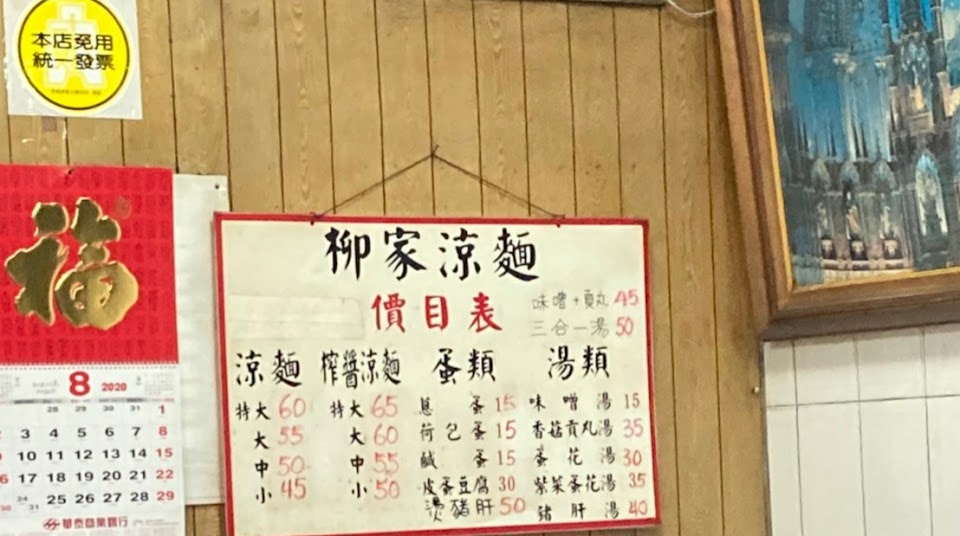 本店免用
統一發票
福
8 2020
28 29 30 31 1
3 4 5 6 7 8
10 11 12 13 14 15
17 18 19 20 21 22
24 25 26 27 28 29
31
華泰商業銀行
柳家涼麵
價目表
味噌+貢丸 45
三合一湯 50
涼麵
特大 60
大 55
中 50
小 45
榨醬涼麵
特大 65
大 60
中 55
小 50
蛋類
蔥蛋 15
荷包蛋 15
鹹蛋 15
皮蛋豆腐 30
燙豬肝 50
湯類
味噌湯 15
香菇貢丸湯 35
蛋花湯 30
紫菜蛋花湯 35
豬肝湯 40